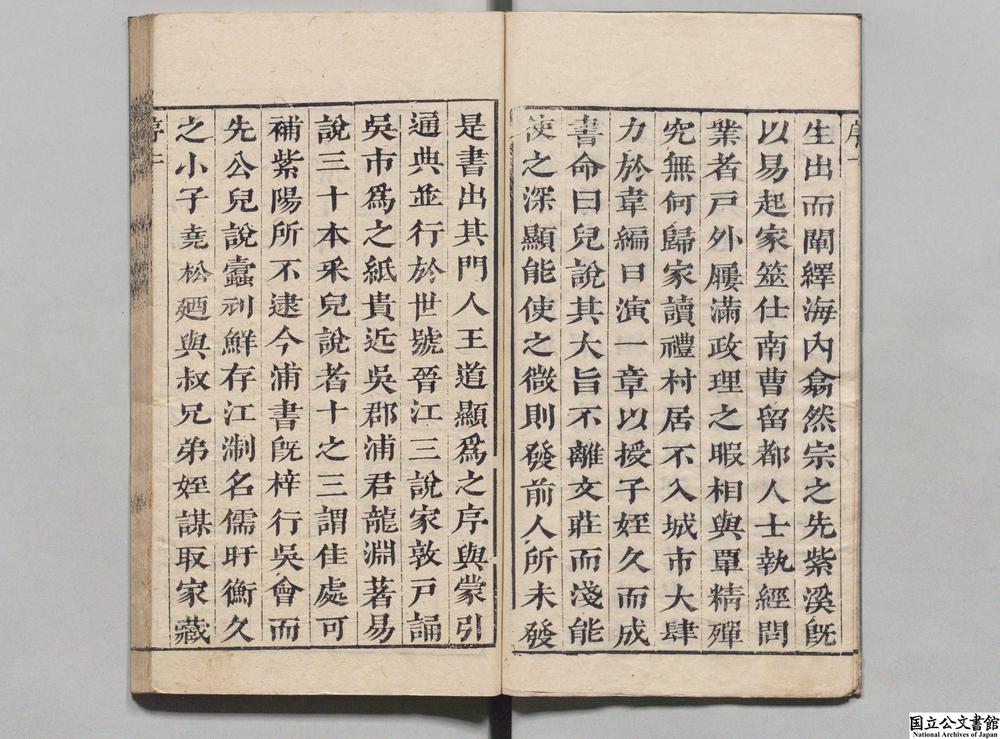 生出而闡繹海內翕然宗之先紫溪旣
以易起家筮仕南曹留都人士執經問
業者戶外屨滿政理之暇相與單精殫
究無何歸家讀禮村居不入城市大肆
力於韋編日演一章以授子姪久而成
書命曰兒說其大旨不離文莊而淺能
使之深顯能使之微則發前人所未發
是書出其門人王道顯爲之序與蒙引
通典並行於世號晉江三說家敦戶誦
吳市爲之紙貴近吳郡浦君龍淵著易
說三十本采兒說者十之三謂佳處可
補紫陽所不逮今浦書旣梓行吳會而
先公兒說蠹利鮮存江淛名儒盱衡久
之小子堯松廼與叔兄弟姪謀取家藏
国立公文書館
National Archives of Japan